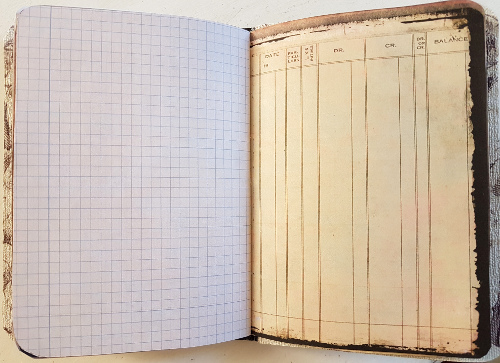 DATE
19
DR.
CR.
DR.
OR
CR.
BALANCE